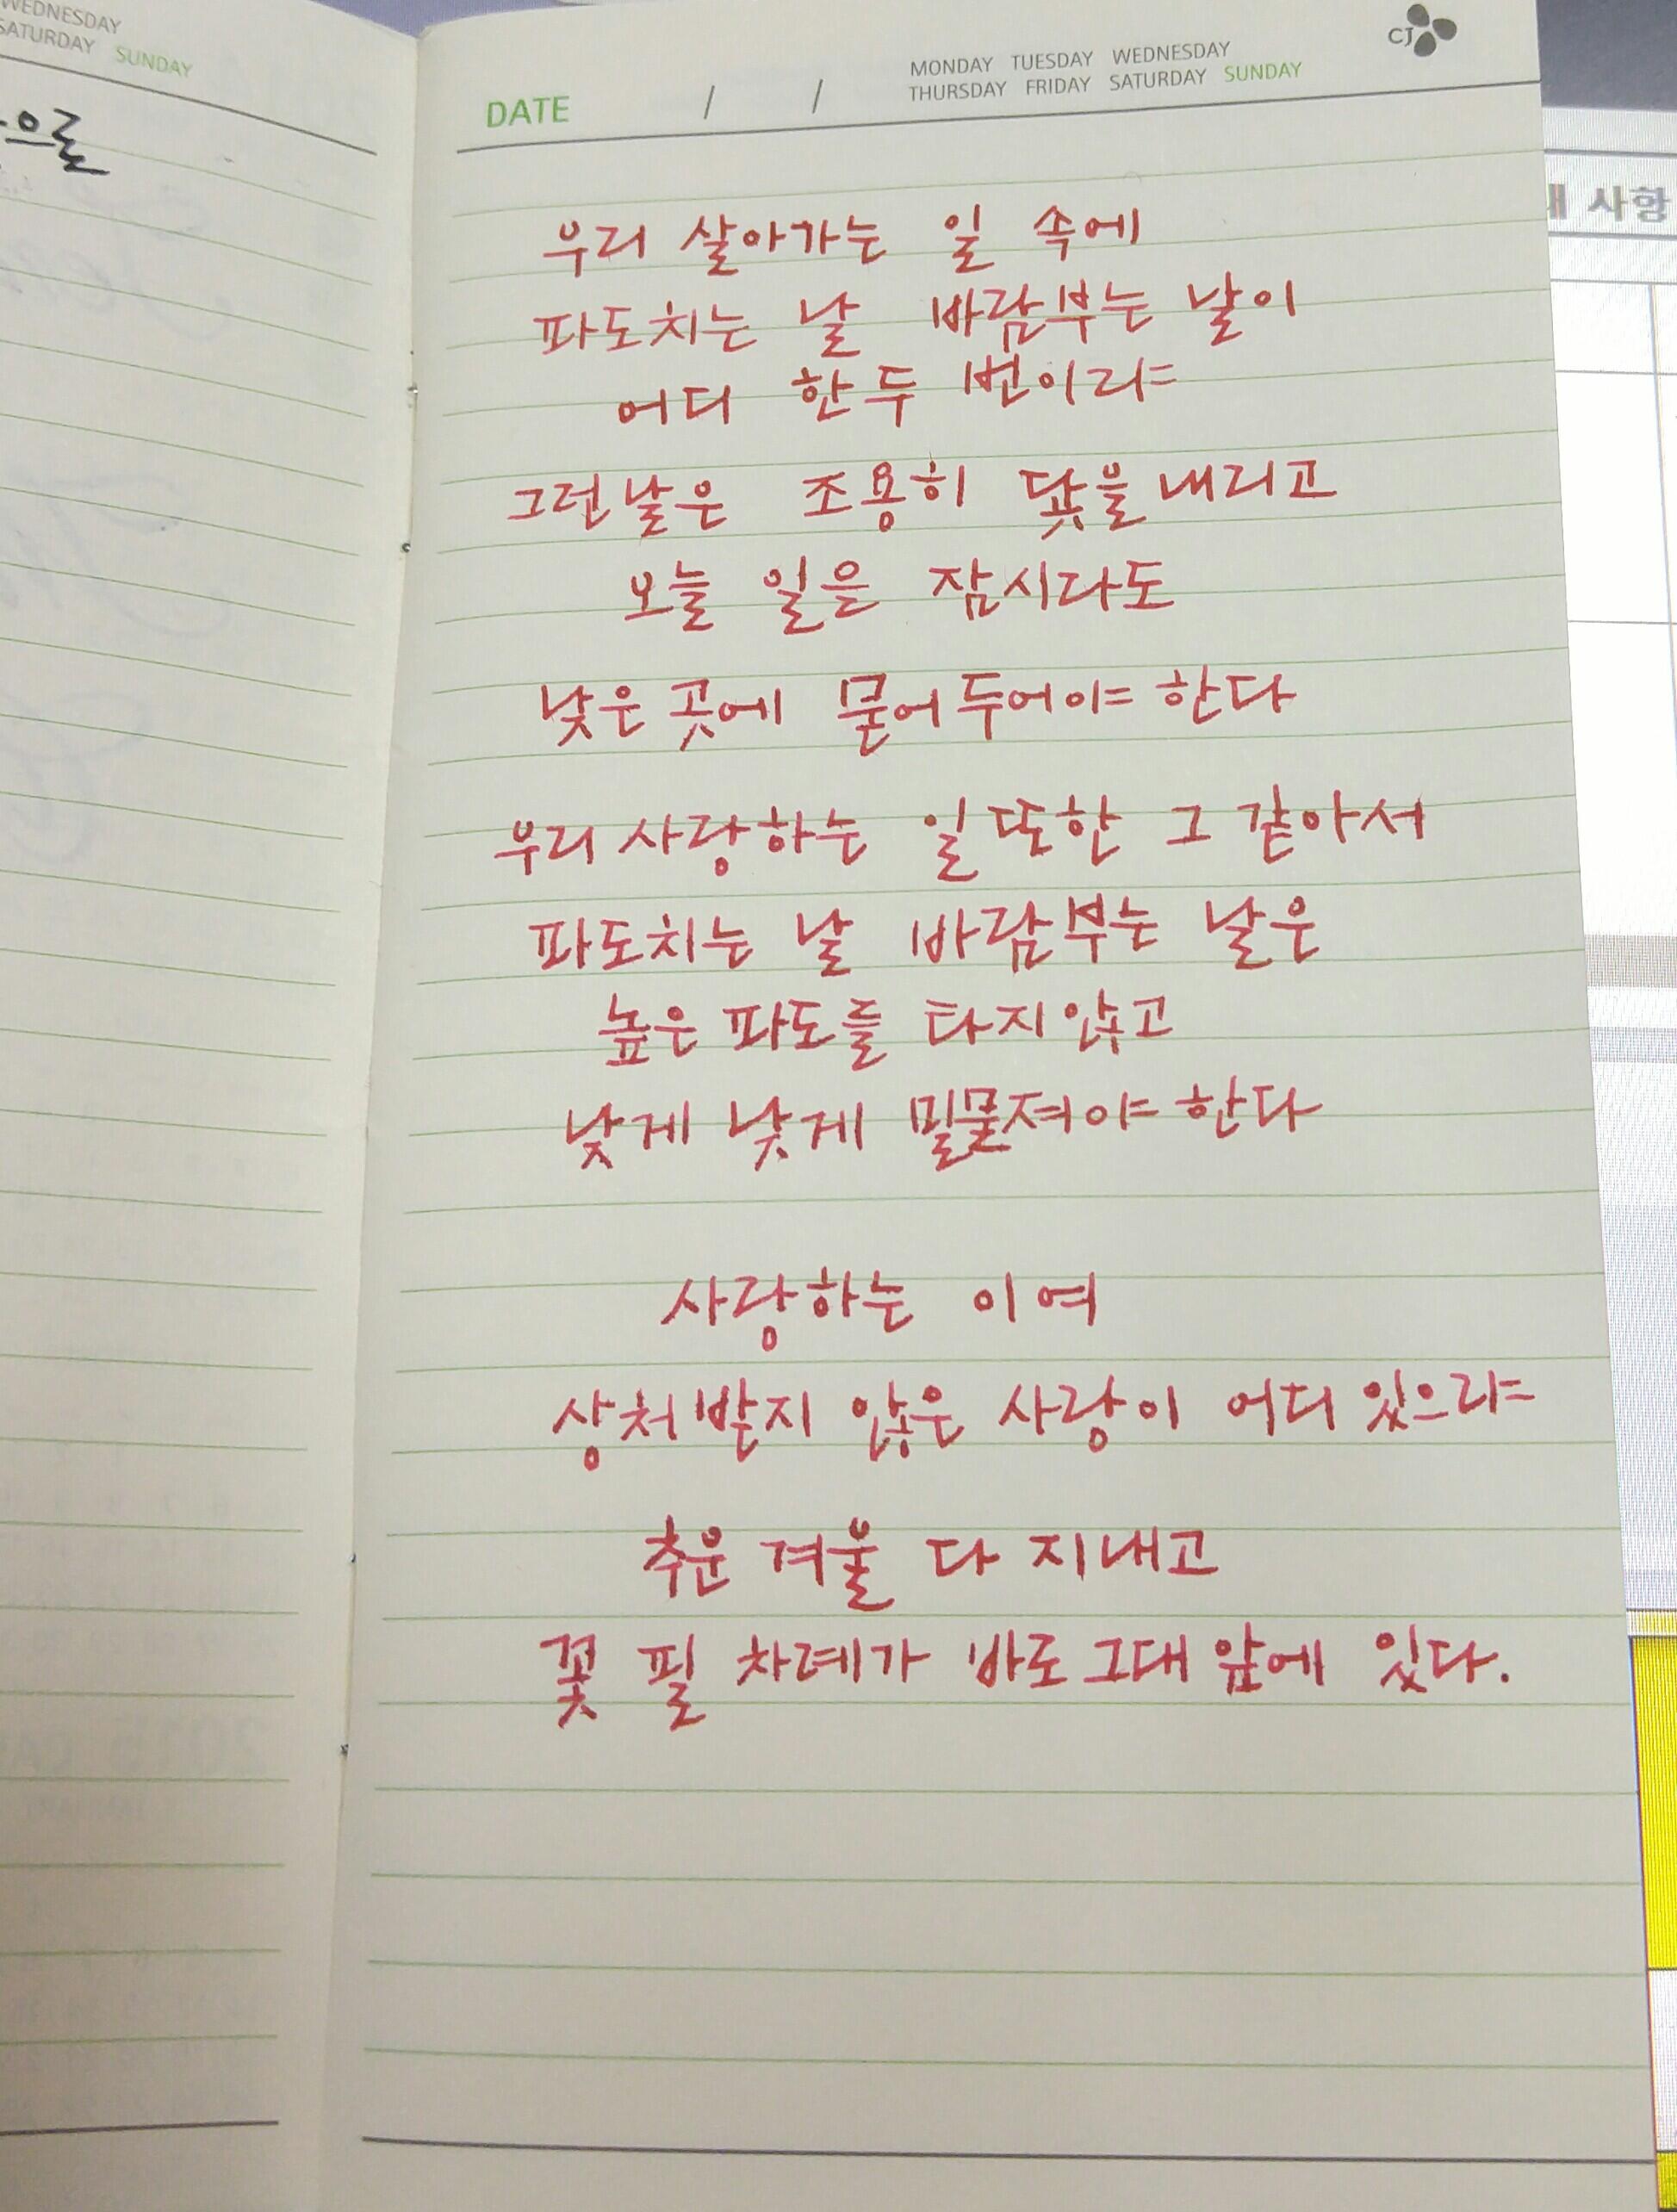 WEDNESDAY
SATURDAY SUNDAY
으로
DATE / /
MONDAY TUESDAY WEDNESDAY
THURSDAY FRIDAY SATURDAY SUNDAY
CJ
사항
우리 살아가는 일 속에
파도치는 날 바람부는 날이
어디 한두 번이랴
그런날은 조용히 닻을 내리고
오늘 일을 잠시라도
낮은 곳에 묻어두어야 한다
우리 사랑하는 일 또한 그 같아서
파도치는 날 바람부는 날은
높은 파도를 타지않고
낮게 낮게 밀물져야 한다
사랑하는 이여
상처받지 않은 사랑이 어디 있으랴
추운 겨울 다 지내고
꽃 필 차례가 바로 그대 앞에 있다.